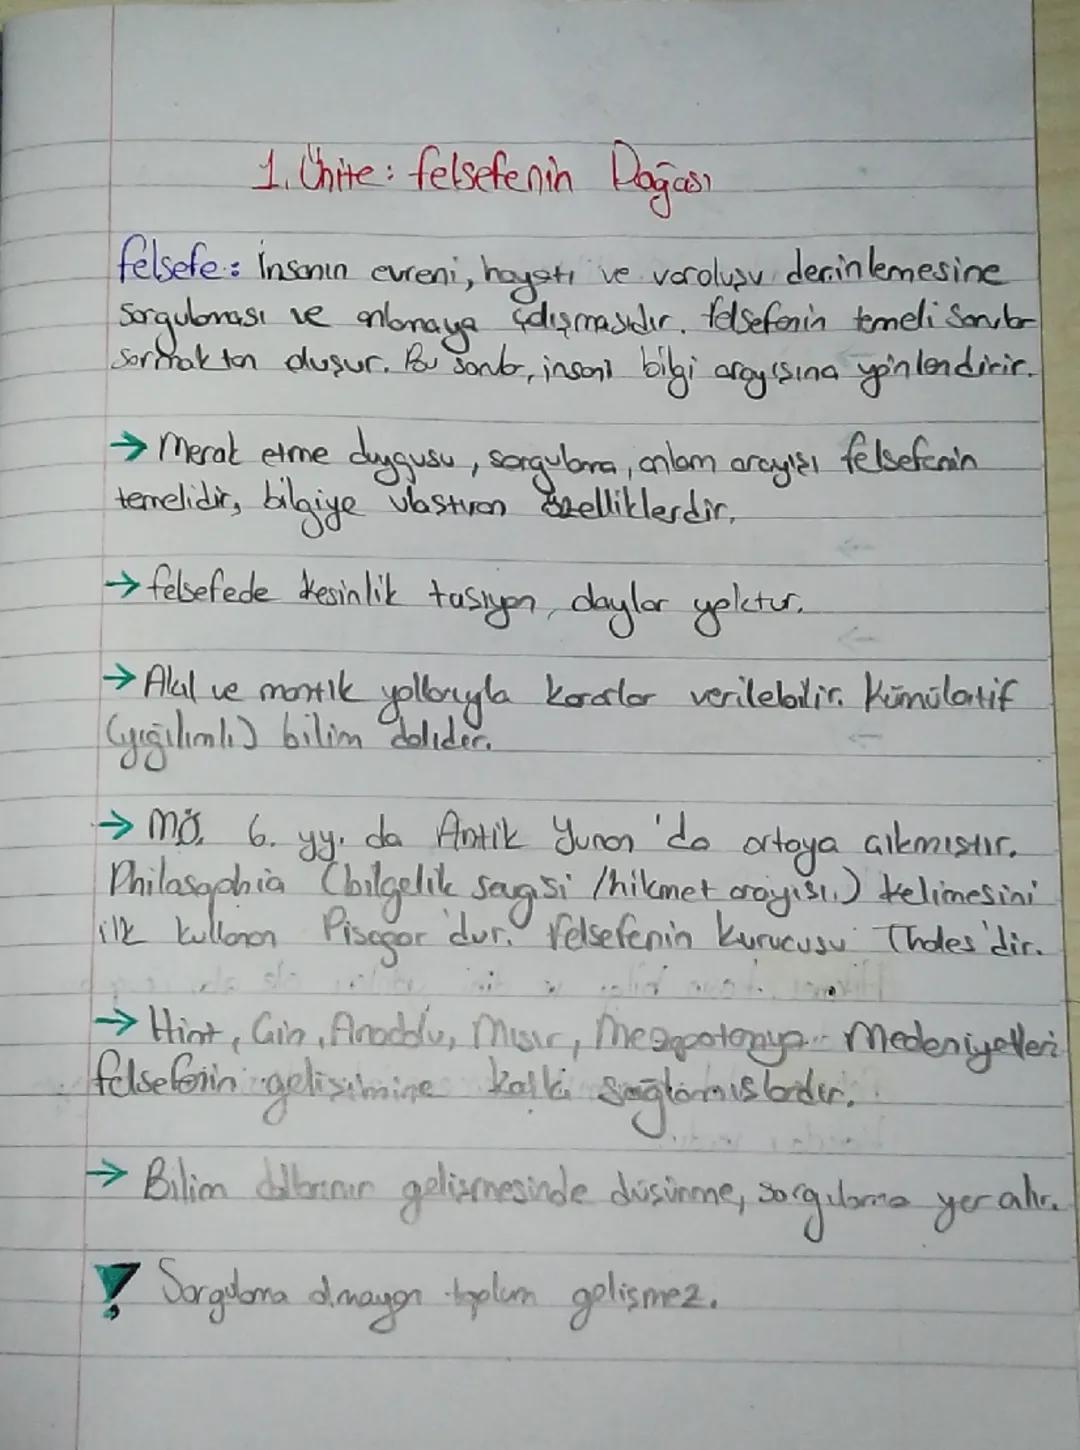 1. Ünite: felsefenin Doğası
felsefe: İnsanın evreni, hayatı ve varoluşu derinlemesine
sorgulaması ve anlamaya çalışmasıdır. felsefenin temeli sorular
sormaktan oluşur. Bu sorular, insanı bilgi arayışına yönlendirir.
→ Merak etme duygusu, sorgulama, anlam arayışı felsefenin
temelidir, bilgiye ulastıran özelliklerdir.
→ felsefede kesinlik tasıyan olaylar yoktur.
→ Akıl ve mantık yollarıyla kararlar verilebilir. Kümülatif
(yığılımlı) bilim dalıdır.
→ MÖ. 6. yy. da Antik Yunan'da ortaya çıkmıstır.
Philasophia (bilgelik sevgisi / hikmet arayısı.) kelimesini
ilk kullanan Pisagor'dur. felsefenin kurucusu Thales'dir.
→ Hint, Çin, Anadolu, Mısır, Mezopotamya Medeniyetleri
felsefenin gelisimine katkı sağlamıslardır.
→ Bilim dallarının gelismesinde düsünme, sorgulama yer alır.
! Sorgulama olmayan toplum gelişmez.